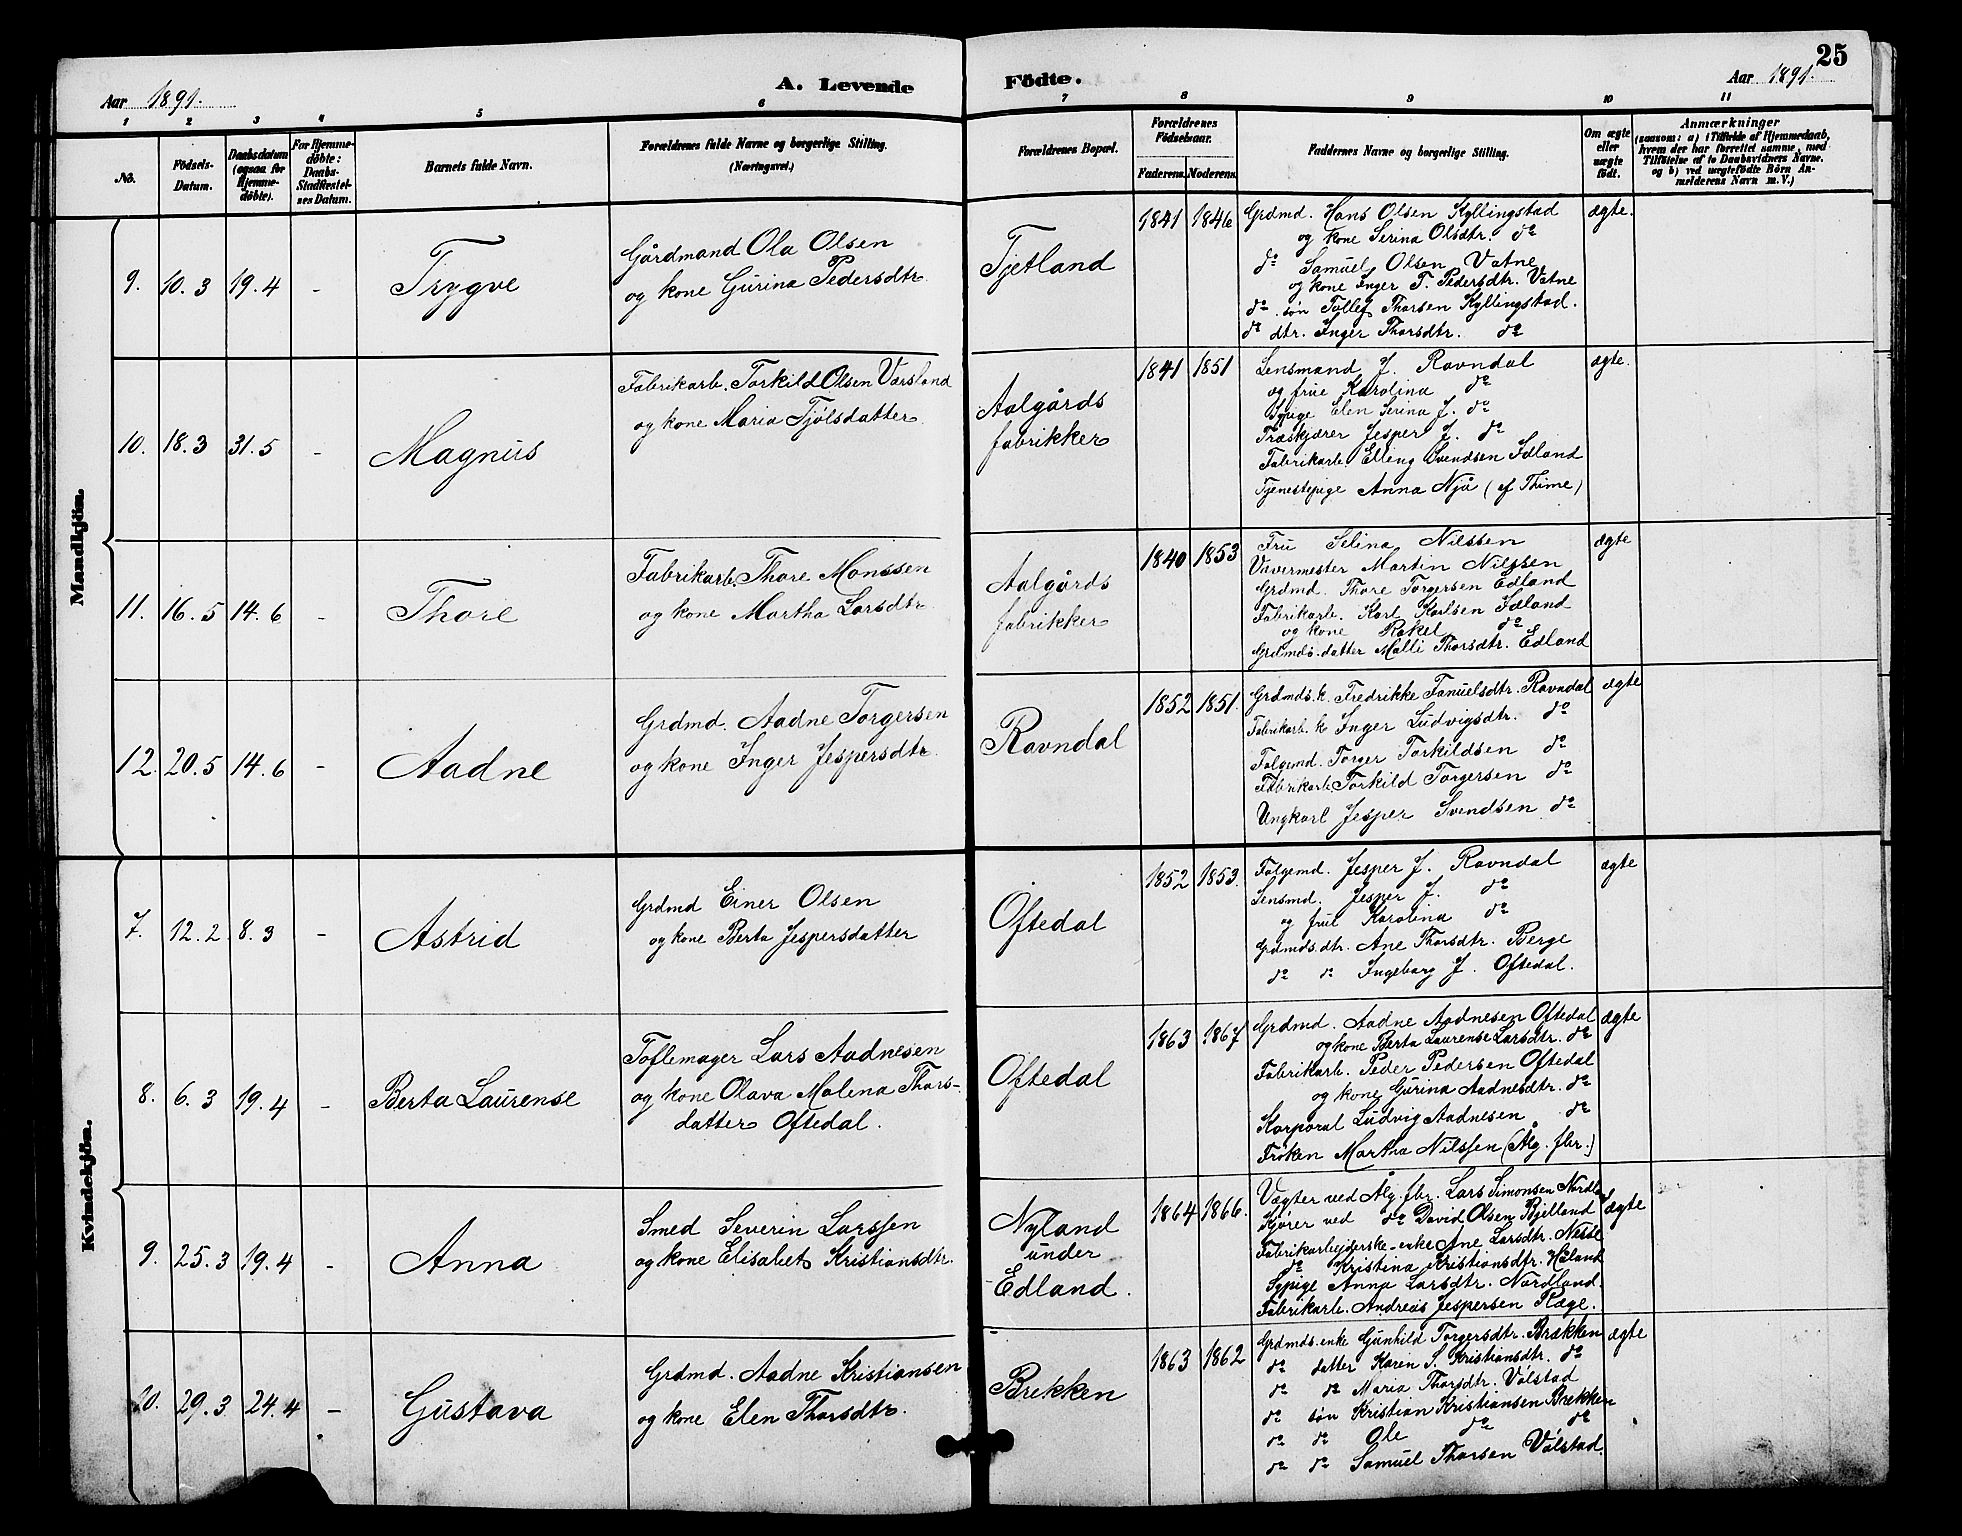 25
Aar 1891.
A. Levende Födte.
Aar 1891.
1 2 3 4 5 6 7 8 9 10 11
No.
Födsels-Datum.
Daabsdatum (ogsaa for Hjemmedöbte).
For Hjemmedöbte: Daabs-Stadfæstelses Datum.
Barnets fulde Navn.
Forældrenes fulde Navne og borgerlige Stilling.
(Næringsvei.)
Forældrenes Bopæl.
Forældrenes Fødselsaar.
Faderens. Moderens.
Faddernes Navne og borgerlige Stilling.
Om ægte eller uægte født.
Anmærkninger
(saasom: a) i Tilfælde af Hjemmedaab,
hvem der har forrettet samme, med
Tilføielse af to Daabsvidners Navne.
og b) ved uægtefødte Börn Anmelderens Navn m. V.)
Mandkjön.
9. 10.3 19.4 - Trygve
Gårdmand Ola Olsen
og kone Gurina Pedersdtr.
Tjetland
1841 1846
Grdmd. Hans Olsen Kyllingstad
og kone Serina Olsdtr. do
do Samuel Olsen Vatne
og kone Inger T. Pedersdtr. Vatne
do. søn Tollef Thorsen Kyllingstad.
do dtr. Inger Thorsdtr. do
ægte.
10. 18.3 31.5 - Magnus
Fabrikarb. Torkild Olsen Varsland
og kone Maria Tjølsdatter
Aalgårds
fabrikker
1841 1851
Lensmand J. Ravndal
og frue Karolina do
Sypige Elen Serina J. do
Træskjærer Jesper J. do
Fabrikarb. Elling Svendsen Edland
Tjenestepige Anna Njå (af Thime)
ægte.
11. 16.5 14.6 - Thore
Fabrikarb. Thore Monssen
og kone Martha Larsdtr.
Aalgårds
fabrikker
1840 1853
Fru Selina Nilssen
Vævermester Martin Nilssen
Grdmd. Thore Torgersen Edland
Fabrikarb. Karl Karlsen Edland
og kone Rakel do
Grdmds. datter Malli Thorsdtr. Edland
ægte
12. 20.5 14.6 - Aadne
Grdmd. Aadne Torgersen
og kone Inger Jespersdtr.
Ravndal
1852 1851.
Grdmds. k. Fredrikke Fanuelsdtr. Ravndal
Fabrikarb. k Inger Ludvigsdtr. do
Folgemd. Torger Torkildsen do
Fabrikarb. Torkild Torgersen do
Ungkarl Jesper Svendsen do
ægte
Kvindekjön.
7. 12.2. 8.3 - Astrid
Grdmd Einer Olsen
og kone Berta Jespersdatter
Oftedal
1852 1853.
Folgemd. Jesper J. Ravndal
Lensmd. Jesper J. do
og frue Karolina do
Grdmds. dtr. Ane Thorsdtr. Berge
do do Ingeborg J. Oftedal.
ægte
8. 6.3 19.4 - Berta Laurense
Toflemager Lars Aadnesen
og kone Olava Malena Thors-
datter Oftedal.
Oftedal
1863 1867
Grdmd. Aadne Aadnesen Oftedal
og kone Berta Laurense Larsdtr. do
Fabrikarb. Peder Pedersen Oftedal
og kone Gurina Aadnesdtr. do
Korporal Ludvig Aadnesen do
Frøken Martha Nilssen (Ålg. fbr.)
ægte
9. 25.3 19.4 - Anna
Smed Severin Larssen
og kone Elisabet Kristiansdtr.
Nyland
under
Edland.
1864 1866.
Vægter ved Ålg. fbr. Lars Simonsen Nordland
Kjører ved do David Olsen Bjelland
Fabrikarbejderske-enke Ane Larsdtr. Nesse
do Kristina Kristiansdtr. Høland
Sypige Anna Larsdtr. Nordland.
Fabrikarb. Andreas Jespersen Ræge.
ægte
10. 29.3 24.4 - Gustava
Grdmd. Aadne Kristiansen
og kone Elen Thorsdtr.
Brekken
1863 1862
Grdmds. enke Gunhild Torgersdtr. Brækken
do datter Karen S. Kristiansdtr. do
do do Maria Thorsdtr. Vølstad
do søn Kristian Kristiansen Brækken
do do Ole do do
do do Samuel Thorsen Vølstad.
ægte